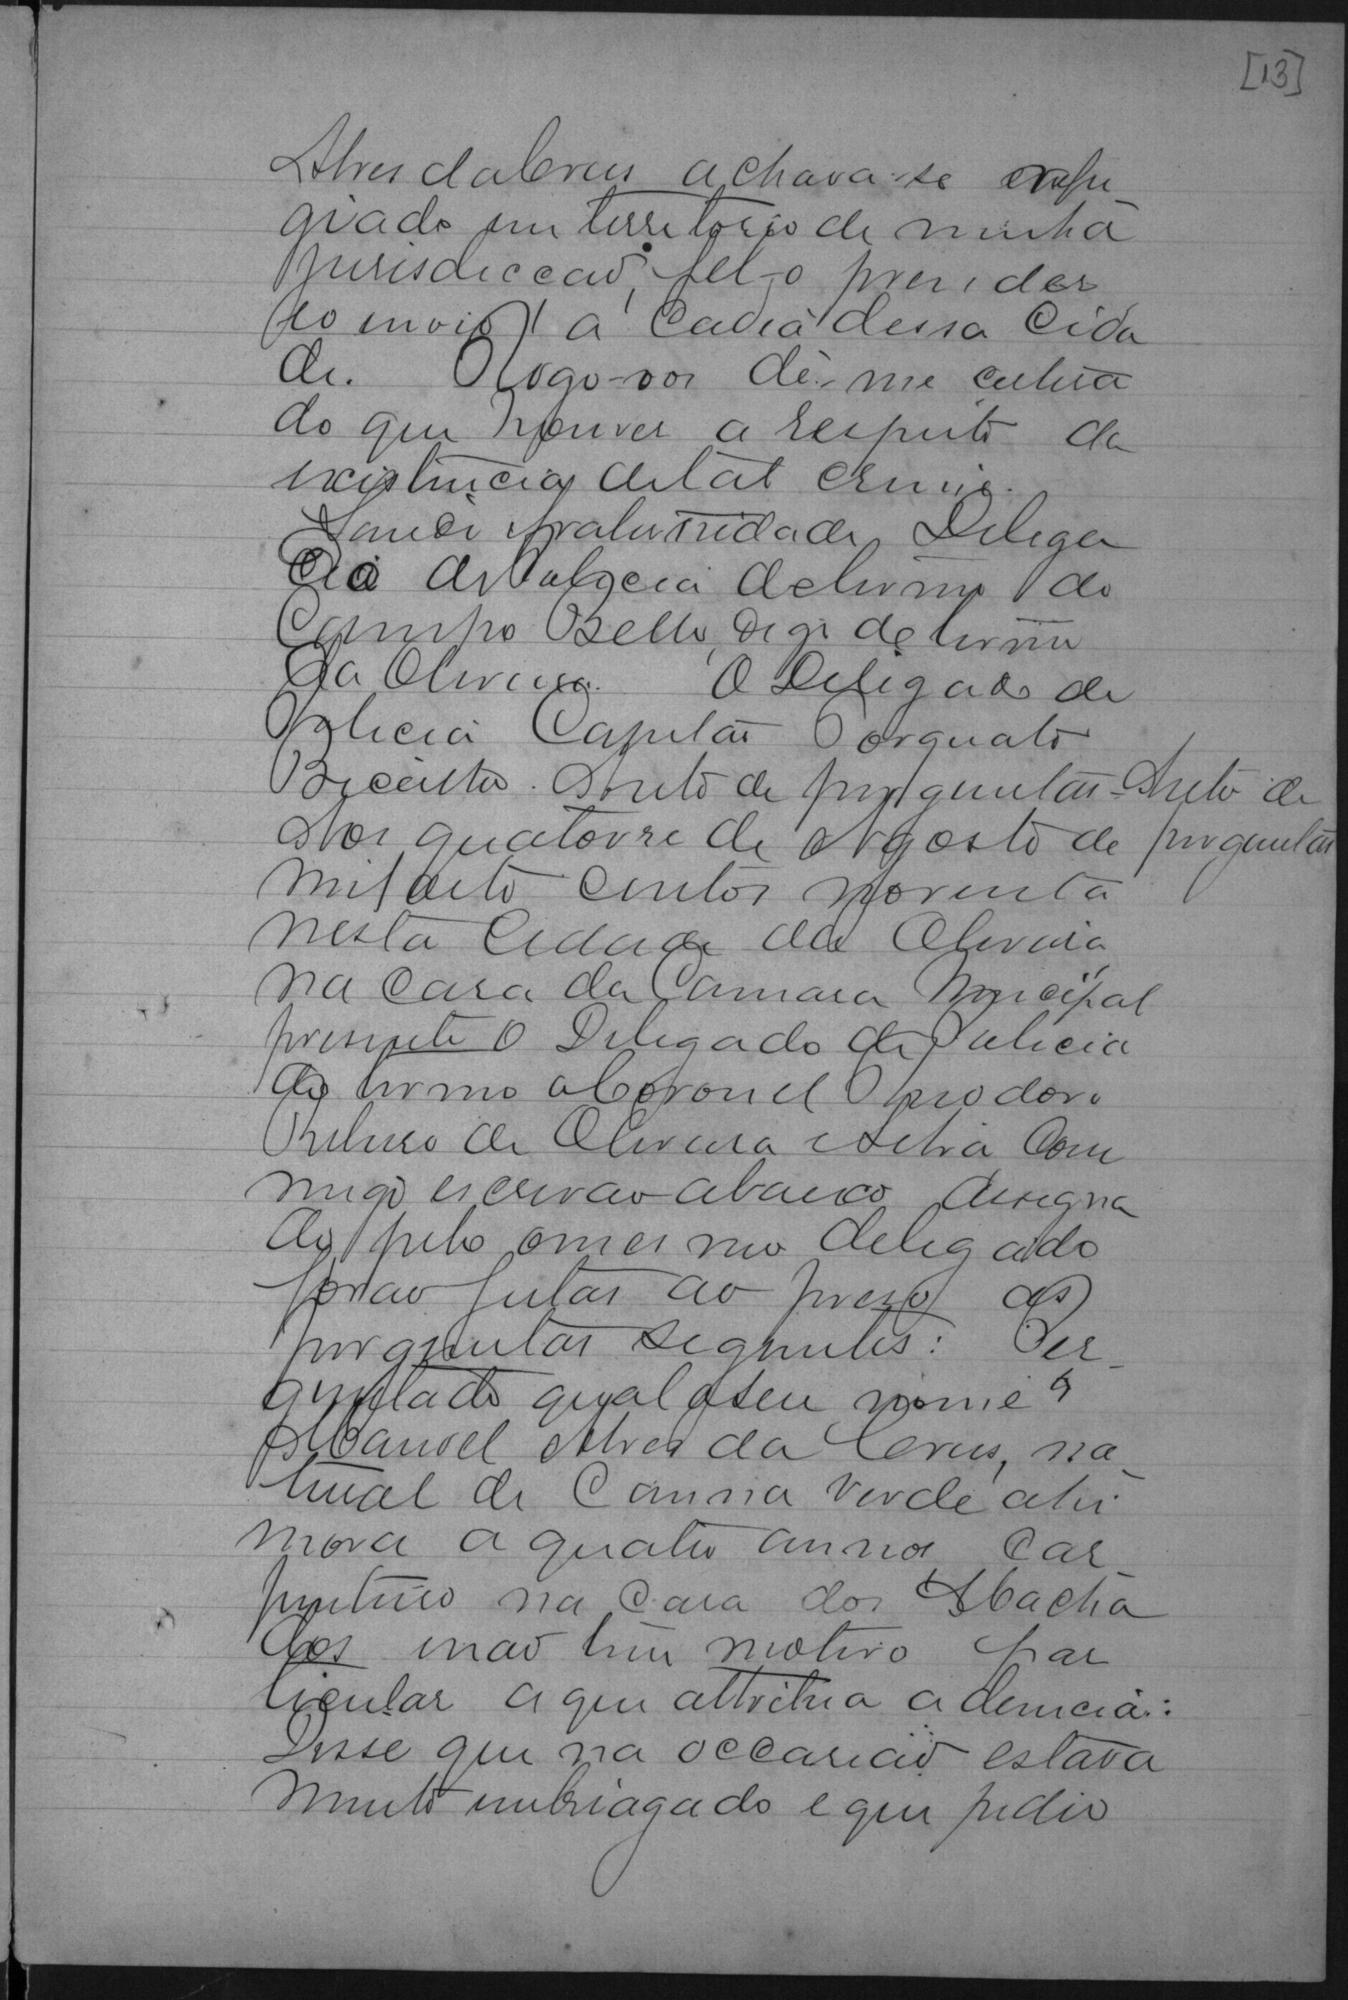 [13]
Alves da Crus achava-se refu
giado em territorio de minha
jurisdiccaõ, fel-o prender
eo envio á Cadeia dessa Cida
de. Rogo-vos dê-me certesa
do que houver a respeito da
existencia de tal crime.
Saude e fraternidade, Delega
cia de Policia do termo do
Campo Bello, digo do termo
da Oliveira. O Delegado de
Policia Capitaõ Torquato
Auto de perguntas - Auto de
Aos quatorse de Agosto de perguntas
mil oito centos noventa
nesta Cidade da Oliveira
na casa da Camara Moncipal
presente o Delegado de Policia
do termo o Coronel Theodoro
Ribeiro de Oliveira e Silva Com
migo escrivao abaixo designa
do pelo mesmo delegado
forao feitas ao preso as
perguntas seguintes: Per-
guntado qual o seu nome?
Manoel Alves da Crus, na
tural de Canna Verde ahi
mora a quatro annos car
pinteiro na casa dos Macha
dos e naõ tem motivo par
ticular a que attribua a denuncia:
Disse que na occasiaõ estava
muito embriagado e que pedio